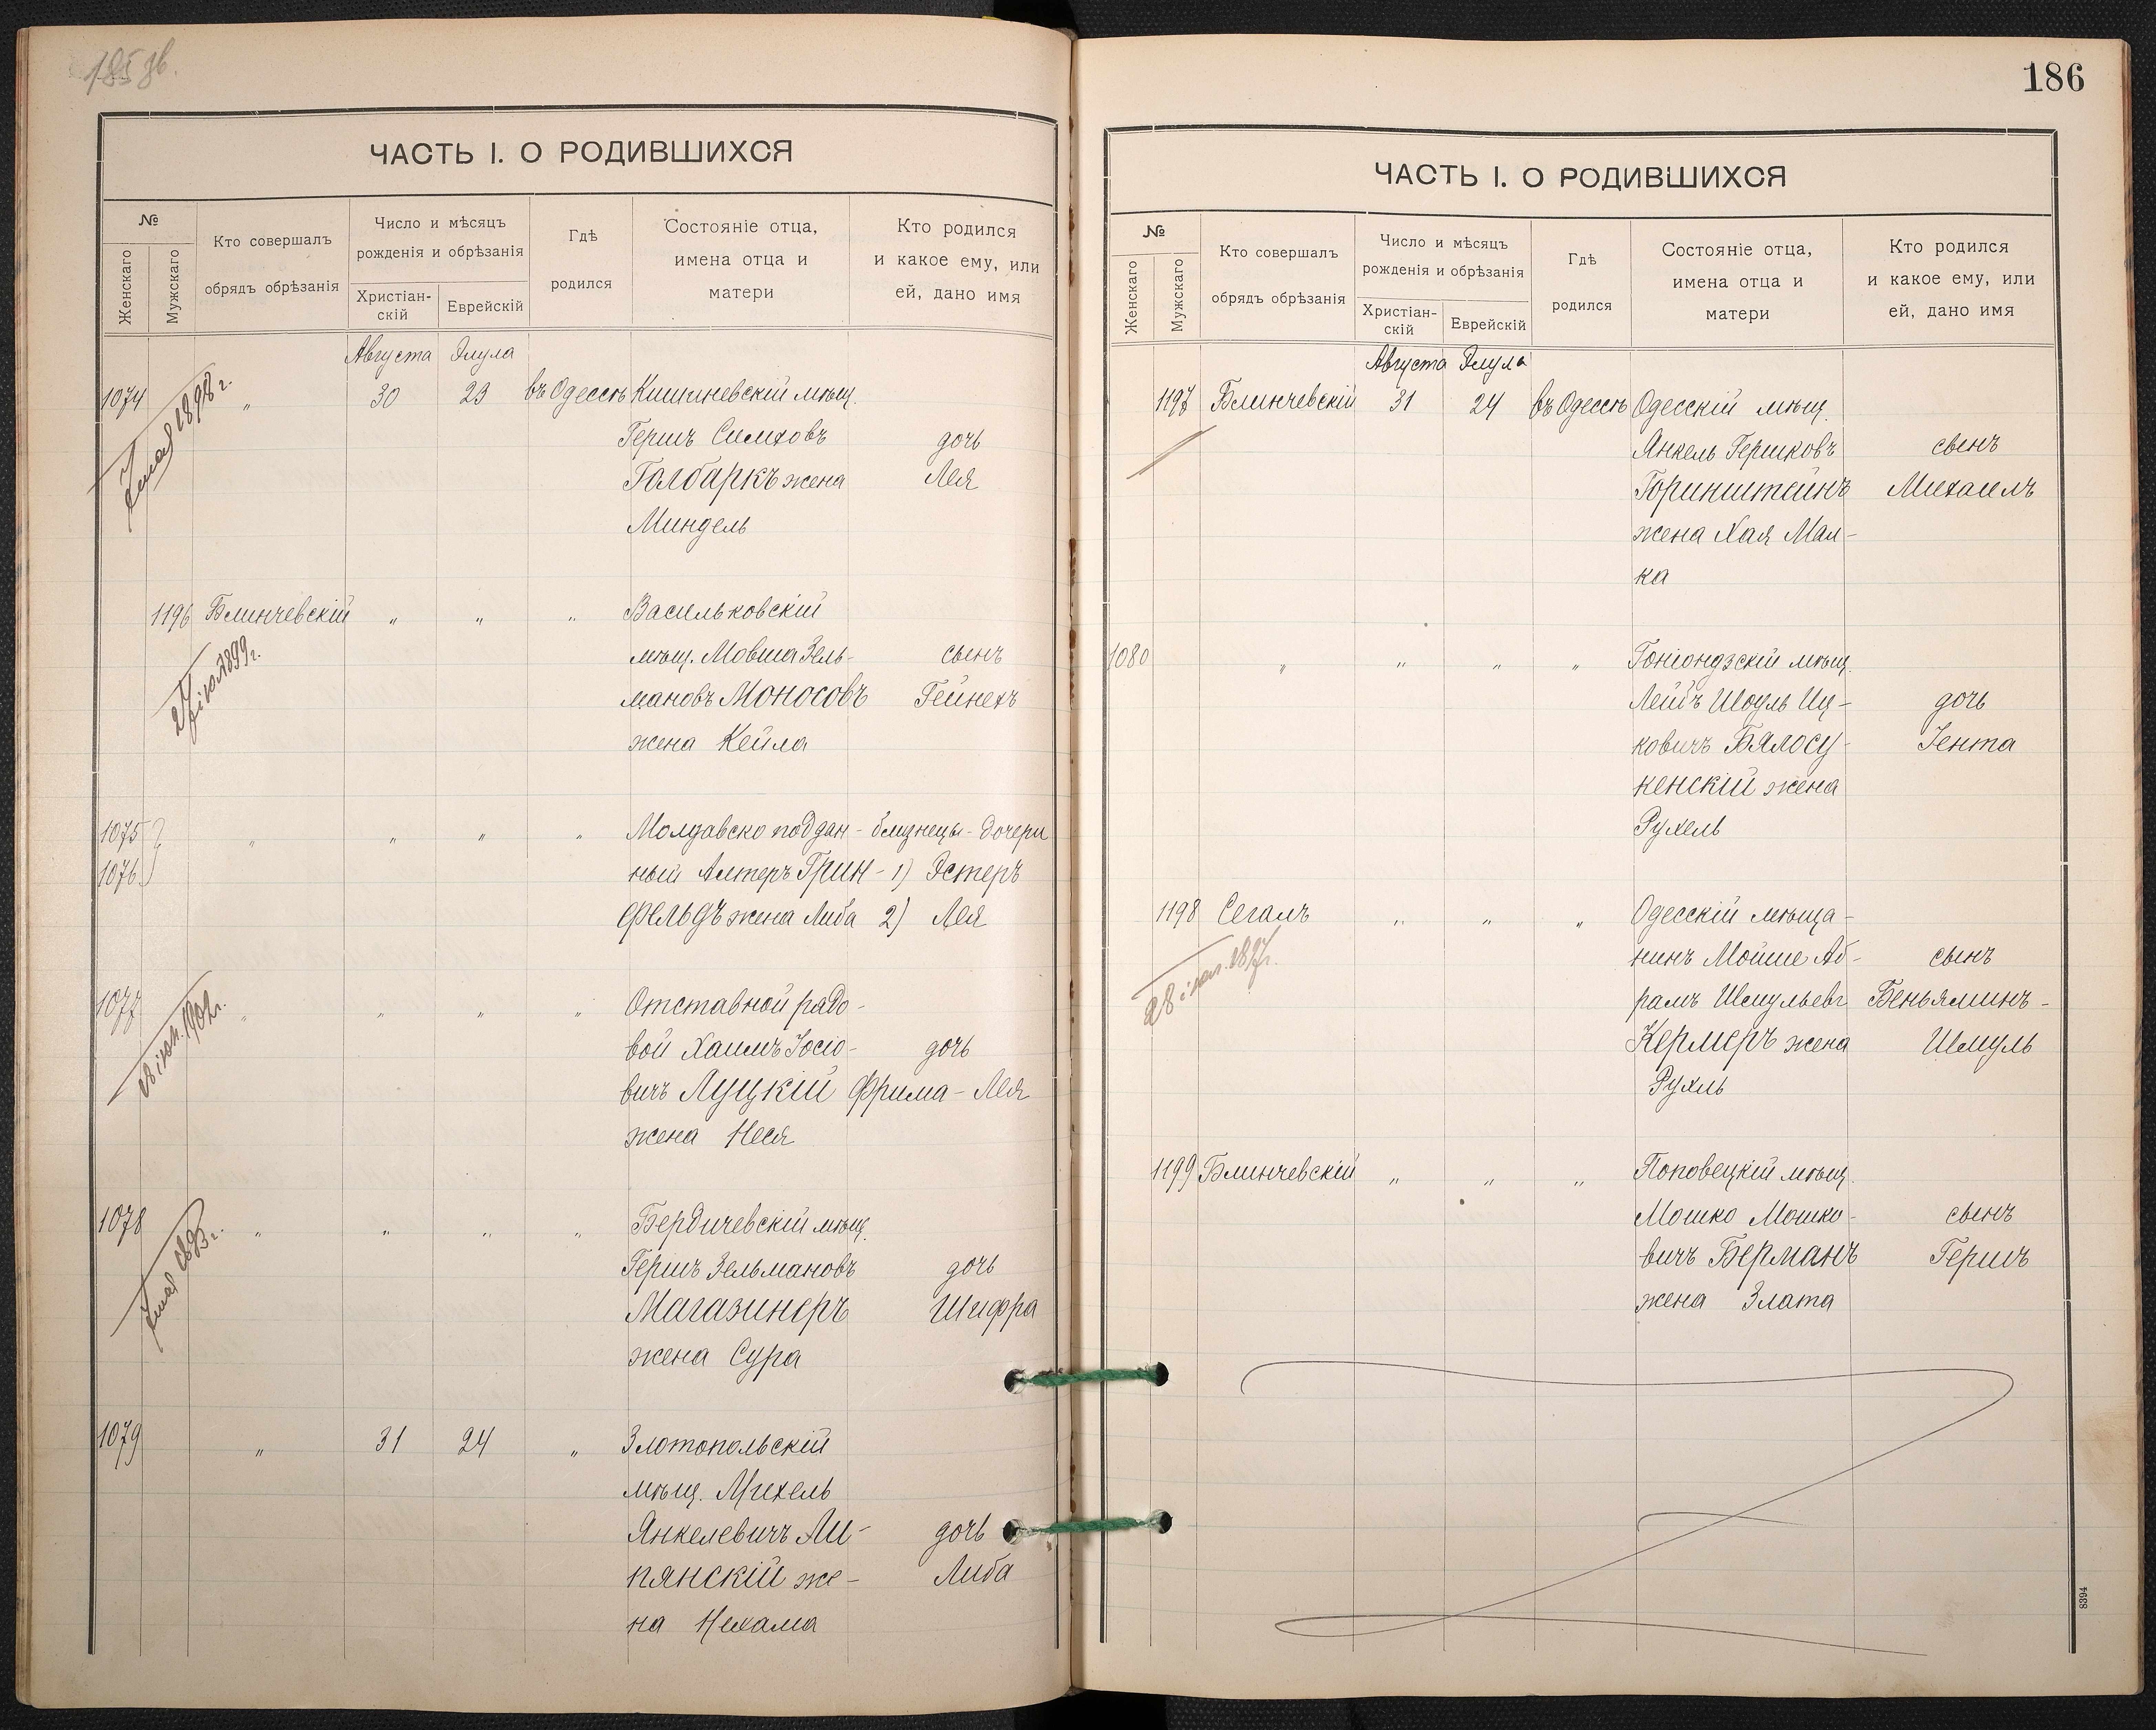 185 об.
ЧАСТЬ I. О РОДИВШИХСЯ
№
Женскаго
Мужскаго
Кто совершалъ
обрядъ обрѣзанія
Число и мѣсяцъ
рожденія и обрѣзанія
Христіан-
скій
Еврейскій
Гдѣ
родился
Состояніе отца,
имена отца и
матери
Кто родился
и какое ему, или
ей, дано имя
Августа Элула
1074 " 30 23 въ Одессѣ Кишиневскій мѣщ.
Гершъ Симховъ дочь
Голбаркъ жена Лея
Миндель
мая 1898 г.
1196 Блинчевскій " " " Васильковскій
мѣщ. Мовша Зель- сынъ
мановъ Моносовъ Гейнехъ
жена Кейла
1899 г.
1075 " " " " Молдавско поддан- близнецы - дочери
1076 ный Алтеръ Грин- 1) Эстеръ
фельдъ жена Либа 2) Лея
1077 " " " " Отставной рядо-
вой Хаимъ Іосіо- дочь
вичъ Луцкій Фрима - Лея
жена Неся
1902 г.
1078 " " " " Бердичевскій мѣщ.
Гершъ Зельмановъ дочь
Магазинеръ Шифра
жена Сура
мая
1079 " 31 24 " Злотопольскій
мѣщ. Михель
Янкелевичъ Ли- дочь
пянскій же- Либа
на Нехама
186
ЧАСТЬ I. О РОДИВШИХСЯ
№
Женскаго
Мужскаго
Кто совершалъ
обрядъ обрѣзанія
Число и мѣсяцъ
рожденія и обрѣзанія
Христіан-
скій
Еврейскій
Гдѣ
родился
Состояніе отца,
имена отца и
матери
Кто родился
и какое ему, или
ей, дано имя
Августа Элула
1197 Блинчевскій 31 24 въ Одессѣ Одесскій мѣщ.
Янкель Гершковъ сынъ
Горинштейнъ Михаилъ
жена Хая Мал-
ка
1080 " " " " Гоніондзскій мѣщ.
Лейбъ Шоуль Иц- дочь
ковичъ Бялосу- Іента
кенскій жена
Рухель
1198 Сегалъ " " " Одесскій мѣща-
нинъ Мойше Аб- сынъ
рамъ Шмульевъ Беньяминъ -
Кермеръ жена Шмуль
Рухль
1199 Блинчевскій " " " Поповецкій мѣщ.
Мошко Мошко- сынъ
вичъ Берманъ Гершъ
жена Злата
8394